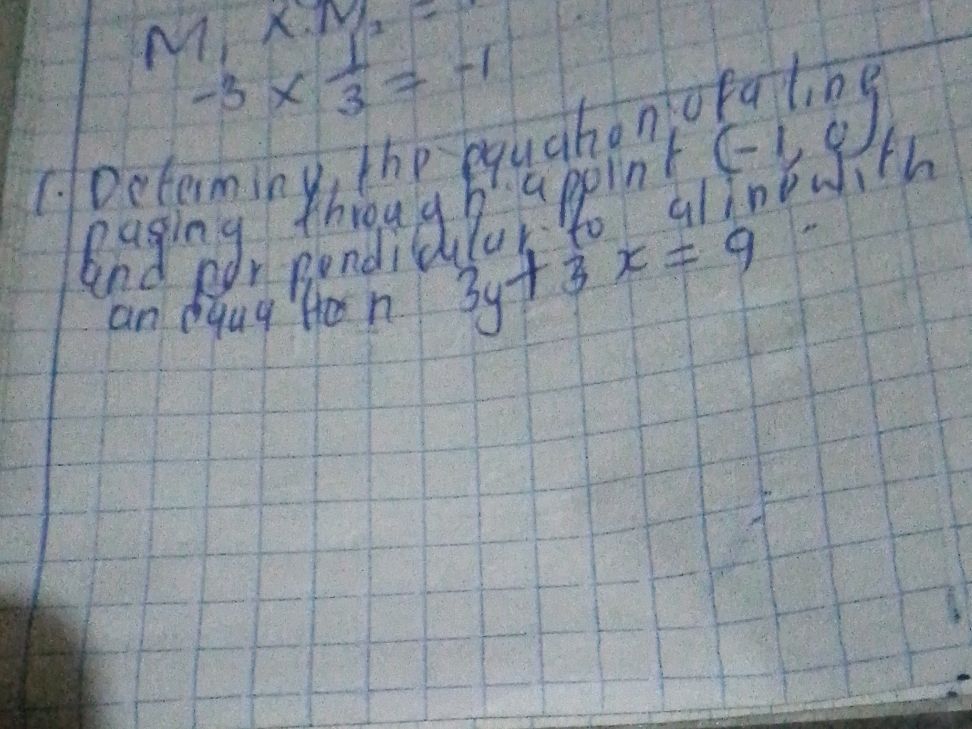 M₁ x M₂ =
-3 x 1/3 = -1
1. Determiny the equation of a line
pasing through a ppoint (-1, 0)
and perpendicular to a line with
an equation 3y + 3x = 9